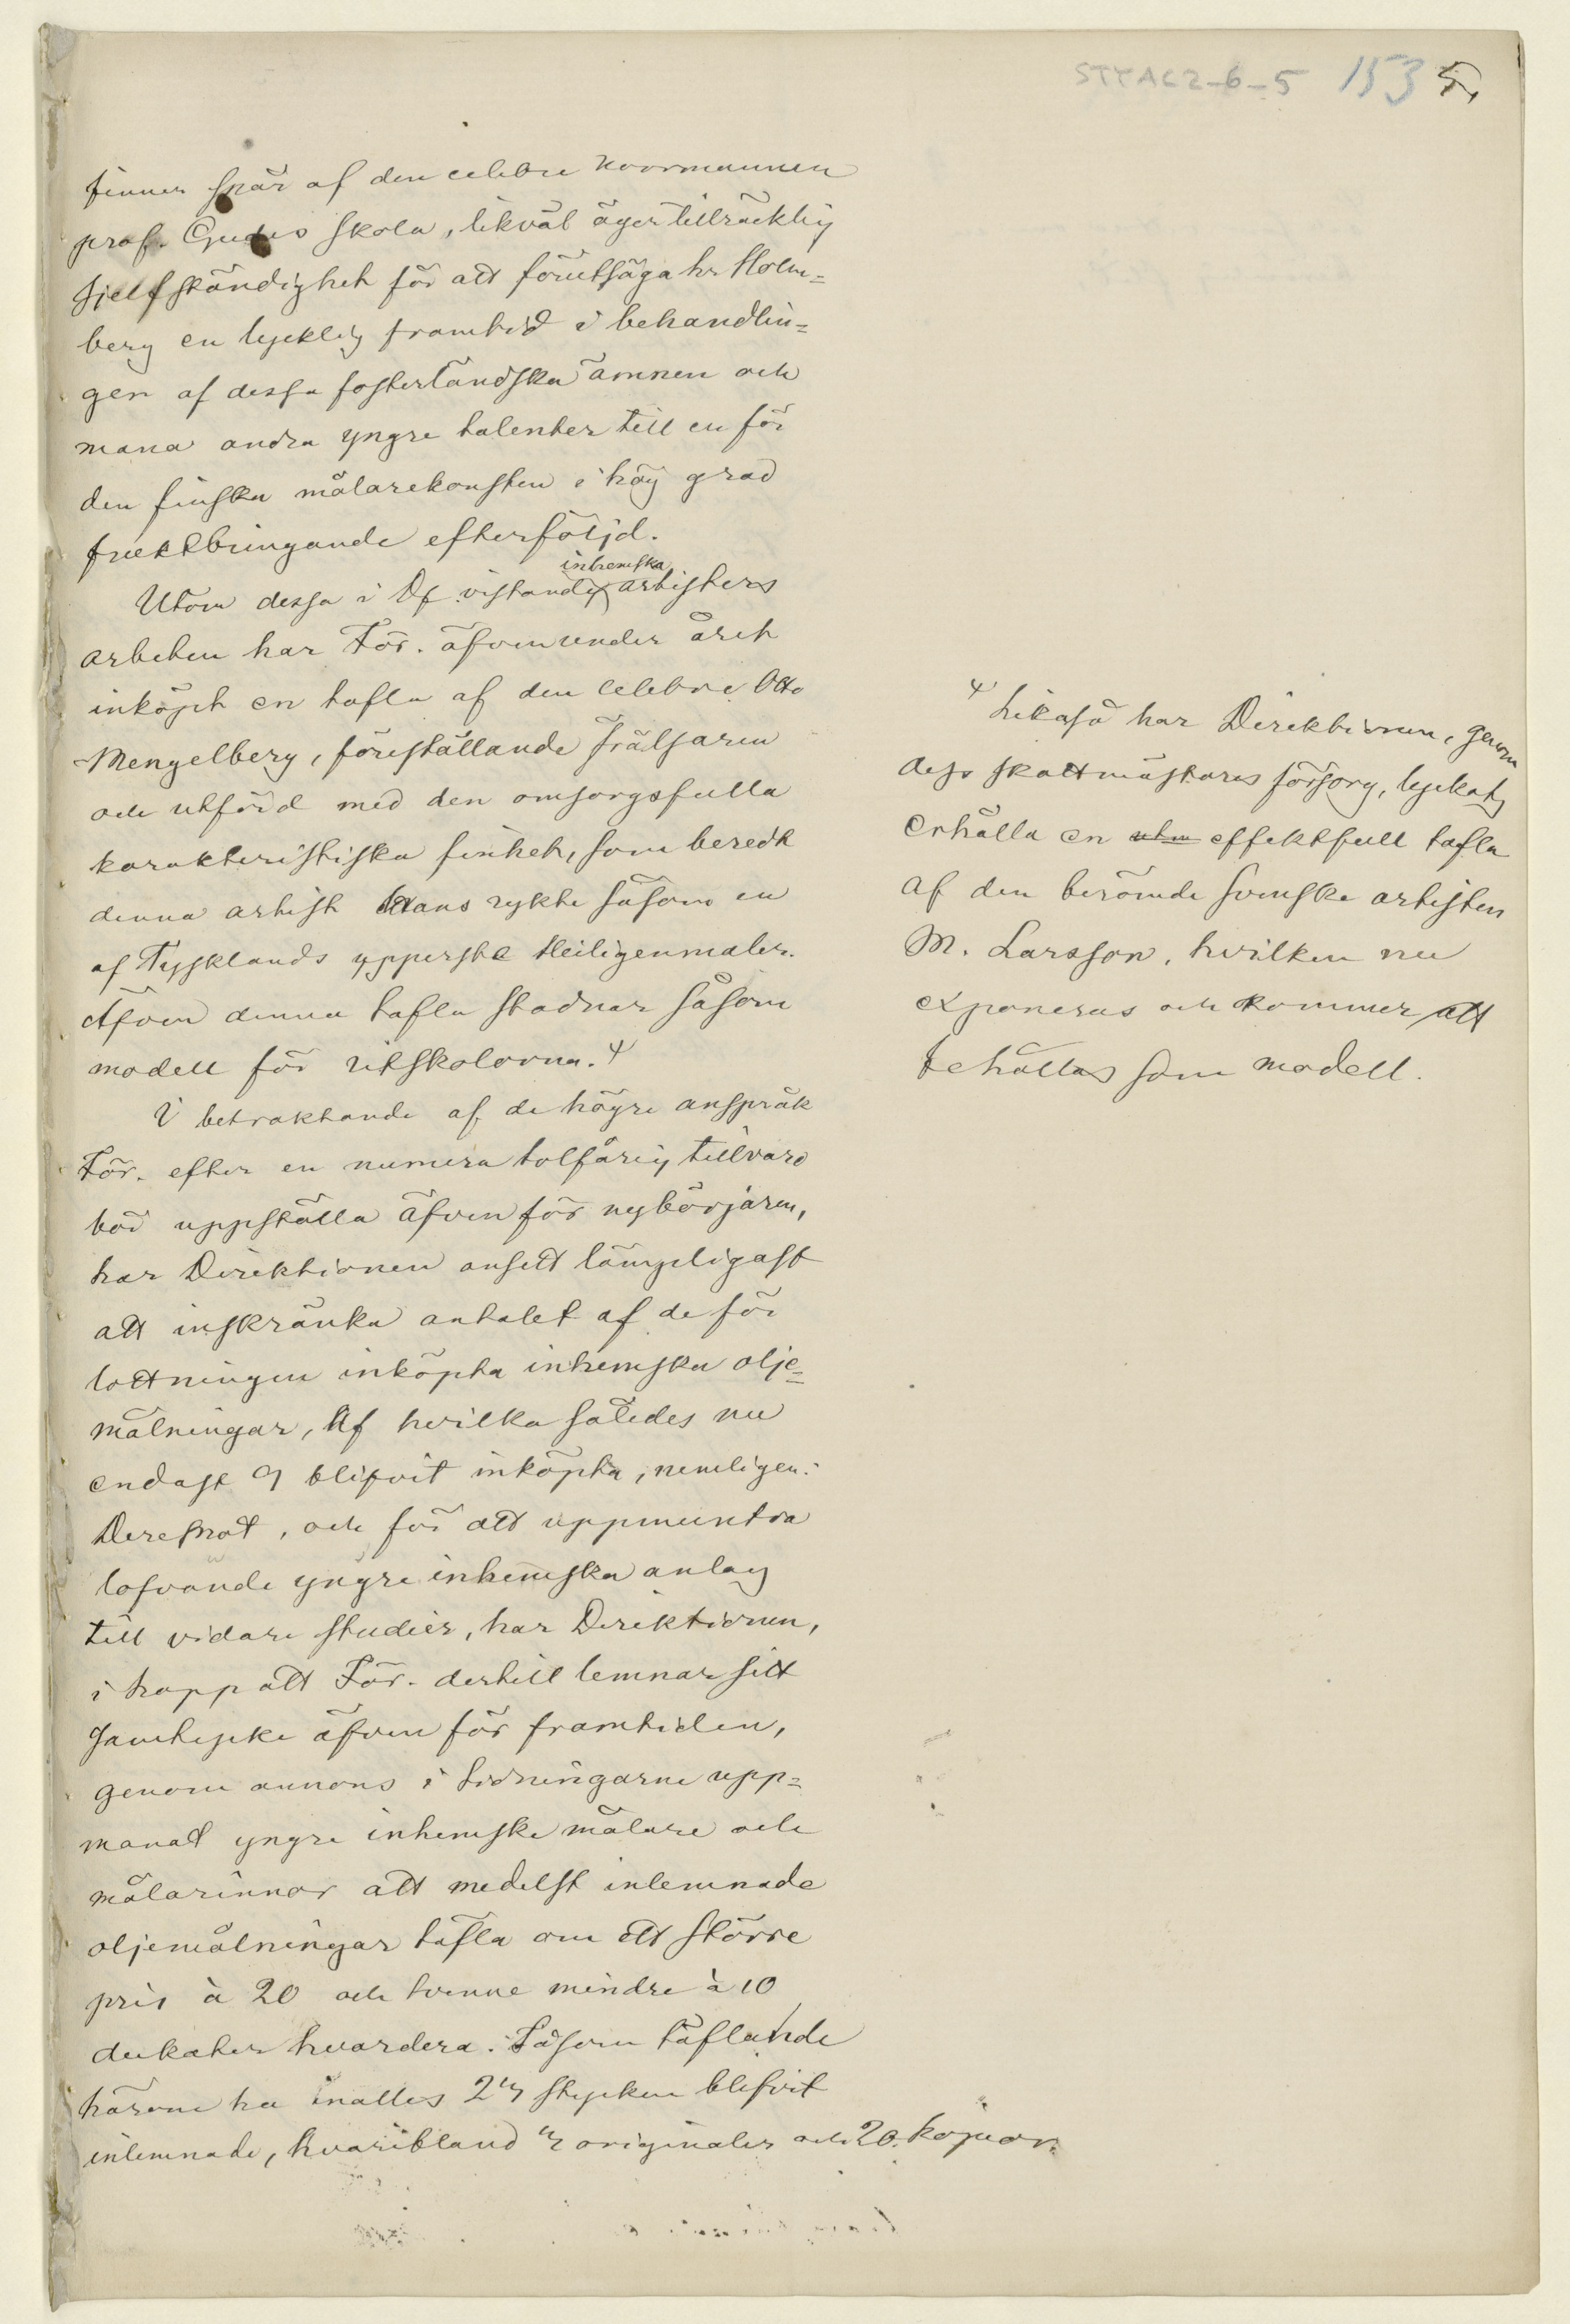 STYAC2-6-5 153 5,
finner spår af den celebre Norrmannen
prof. Gudes skola, likväl äger tillräcklig
sjelfständighet för att förutsäga hr Holm=
berg en lycklig framtid i behandlin=
gen af dessa fosterländska ämnen och
mana andra yngre talenter till en för
den finska målarekonsten i hög grad
fruktbringande efterföljd.
inhemska
Utom dessa i Df vistande artisters
arbeten har För. äfven under året
inköpt en tafla af den celebre Otto
Mengelberg, föreställande Frälsaren
och utförd med den omsorgsfulla
karakteristiska finhet, som beredt
denna artist hans rykte såsom en
af Tysklands ypperste Heiligenmaler.
Äfven denna tafla stadnar såsom
modell för ritskolorna. Ⴕ
I betraktande af de högre anspråk
För. efter en numera tolfårig tillvaro
bör uppställa äfven för nybörjaren,
har Direktionen ansett lämpligast
att inskränka antalet af de för
lottningen inköpta inhemska olje=
målningar, af hvilka således nu
endast 9 blifvit inköpta, nemligen:
Deremot, och för att uppmuntra
lofvande yngre inhemska anlag
till vidare studier, har Direktionen,
i hopp att För. dertill lemnar sitt
samtycke äfven för framtiden,
genom annons i tidningarne upp=
manat yngre inhemske målare och
målarinnor att medelst inlemnade
oljemålningar täfla om ett större
pris à 20 och tvenne mindre à 10
dukater hvardera. Såsom täflande
härom ha inalles stycken blifvit
inlemnade, hvaribland originaler och 20 kopior.
Ⴕ Likaså har Direktionen, genom
dess skattmästares försorg, lyckats
erhålla en utm effektfull tafla
af den berömde svenske artisten
M. Larsson, hvilken nu
exponeras och kommer att
behållas som modell.